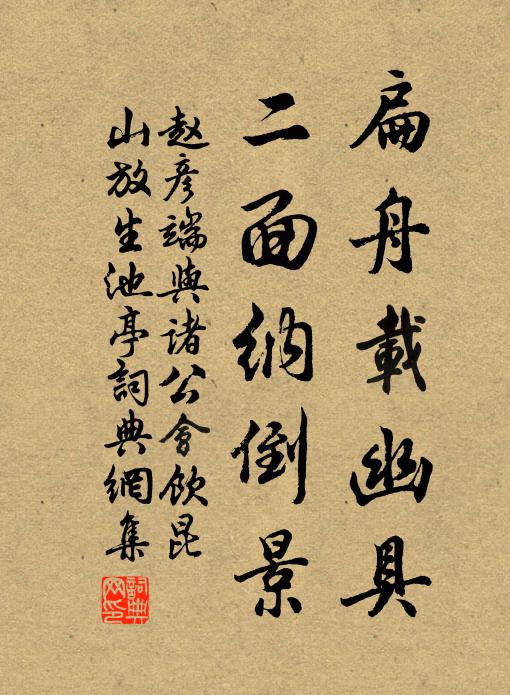 扁舟載幽具
二面納倒景
赵彦端與诸公會飲昆
山放生池亭詞典網集
詞典
网印